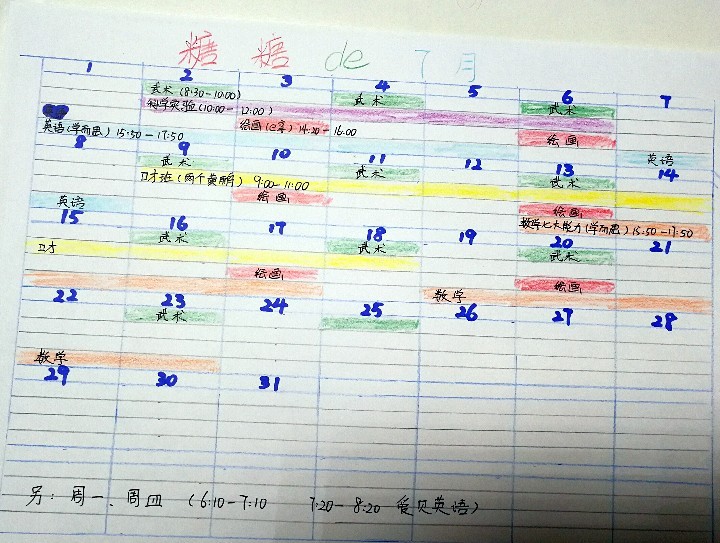 糖糖de 7月
1 2 3 4 5 6 7
武术(8:30-10:00) 武术 武术
科学实验(10:00-12:00)
英语(学而思)15:50-17:50 绘画(心亲)14:20-16:00 绘画 英语
8 9 10 11 12 13 14
武术 武术 武术
口才班(两个黄鹂)9:00-11:00
英语 绘画 绘画
数学七大能力(学而思)15:50-17:50
15 16 17 18 19 20 21
口才 武术 武术 武术
绘画 绘画
数学
22 23 24 25 26 27 28
武术
数学
29 30 31
另:周一、周四(6:10-7:10 7:20-8:20 爱贝英语)